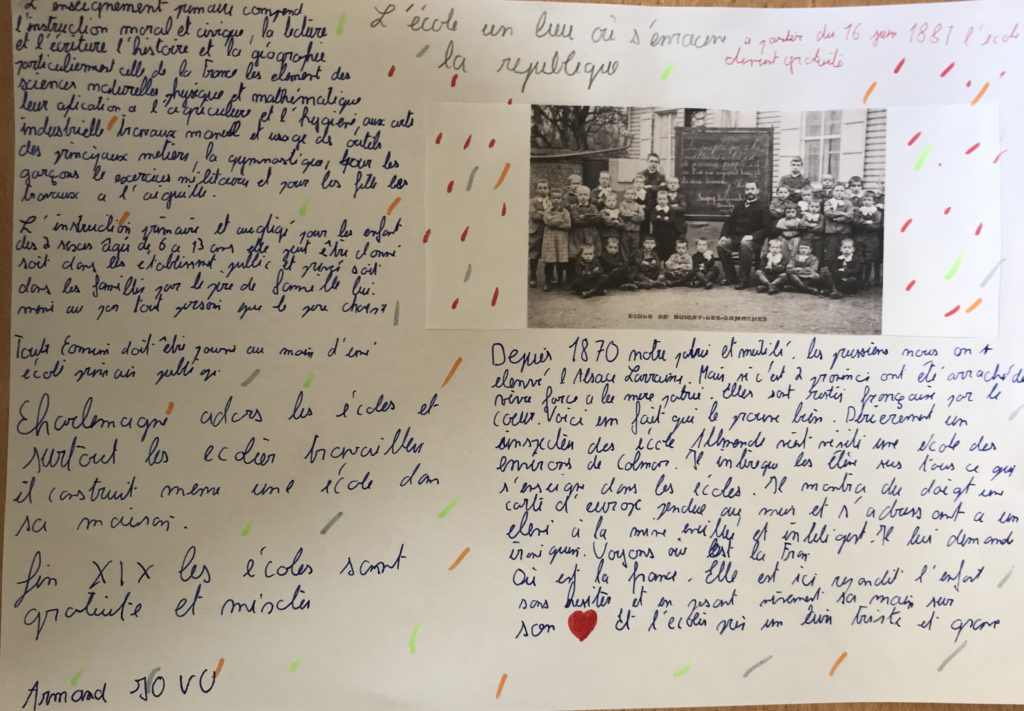 L'enseignement primaire comprend
l'instruction moral et civique, la lecture
et l'écriture l'histoire et la géographie
particulierment celle de la france les element des
sciences naturelles physique et mathématique
leur aplication a l'agriculture et l'hygiène, aux arts
industrielle travaux manuell et usage des outils
des principaux métiers, la gymnastique, pour les
garçons le exercices militaires et pour les fille les
travaux a l'aiguille.
L'instruction primaire et pour les enfant
des 2 sexes agés de 6 a 13 ans elle peut être donné
soit dans les etablisment public et privé soit
dans les familles par le père de famille lui
meme au par tout person que le pere choisit
Toute Commun doit être pourvu au moin d'une
école primair publique
Charlemagne adors les écoles et
surtout les ecolier travailler
il construit meme une école dans
sa maison.
fin XIX les écoles sont
gratuite et mixtes
Armand JOVU
L'école un lieu où s'enracine
la republique
a partir du 16 juin 1881 l'école
devient gratuite
ECOLE DE BUIGNY-LES-GAMACHES
Depuis 1870 notre patrie et mutilé. les prussiens nous on +
elenvé l'Alsace Lorraine. Mais si c'est 2 provinci ont été arraché de
vive force a leu mere patrie. Elles sont restés française par le
coeur. Voici un fait qui le prouve bien. Dernierement un
inspecteu des école Allmande vient visité une école des
environs de Colmar. Il intéroge les élève sur tous ce qui
s'enseigne dans les écoles. Il montra du doigt une
carte d'europe pendue au mur et s'adressant a un
eleve à la mine eveillé et inteligent. Il lui demand
ironiquem. Voyons où est la fran
Où est la france. Elle est ici repondit l'enfant
sans hesiter et en posant vivement sa main sur
son ❤ Et l'ecolier pris un livre triste et grave